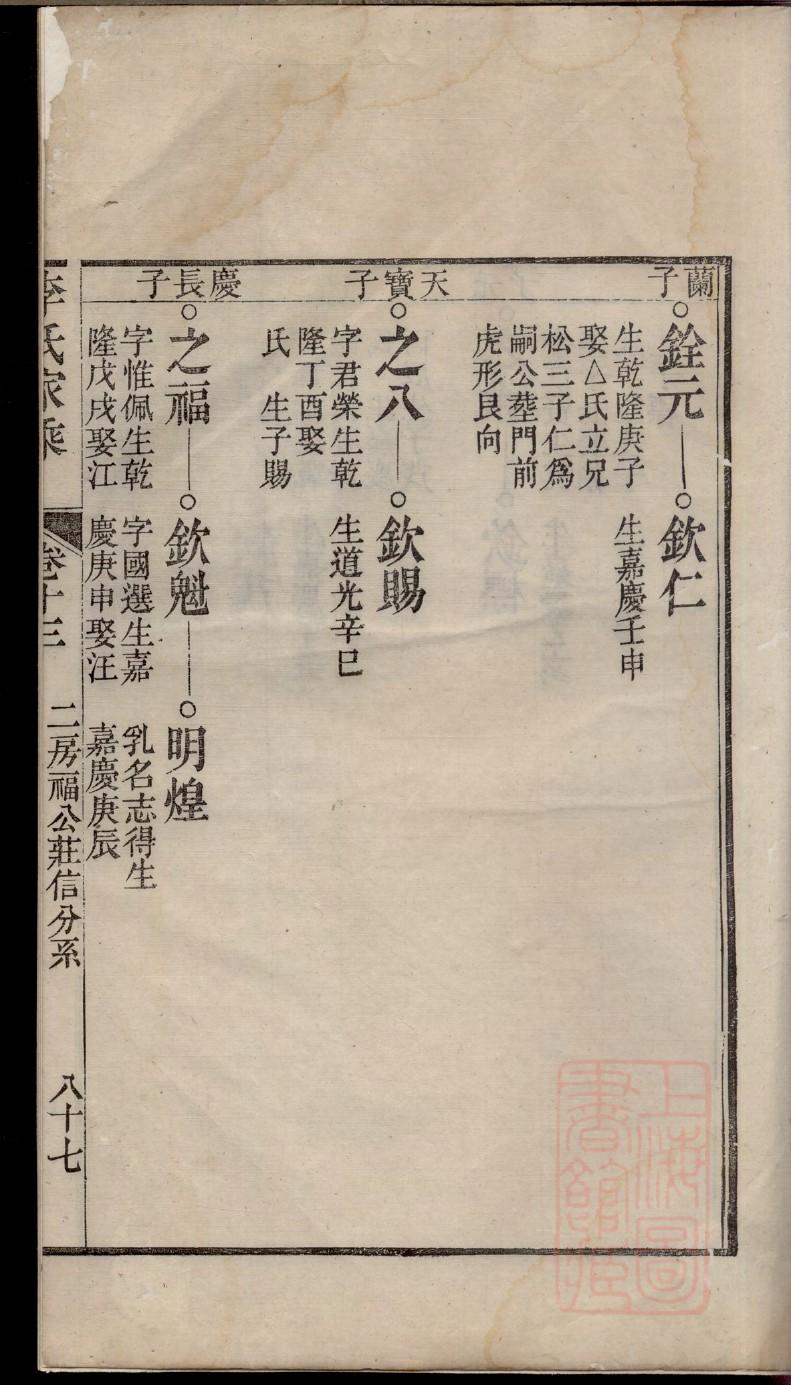 蘭子
銓元
生乾隆庚子
娶△氏立兄
松三子仁爲
嗣公塟門前
虎形艮向
欽仁
生嘉慶壬申
天寶子
之八
字君榮生乾
隆丁酉娶
氏 生子賜
欽賜
生道光辛巳
慶長子
之福
字惟佩生乾
隆戊戌娶江
欽魁
字國選生嘉
慶庚申娶汪
明煌
乳名志得生
嘉慶庚辰
李氏家乘
卷十三
二房福公莊信分系
八十七
上海圖
書館藏